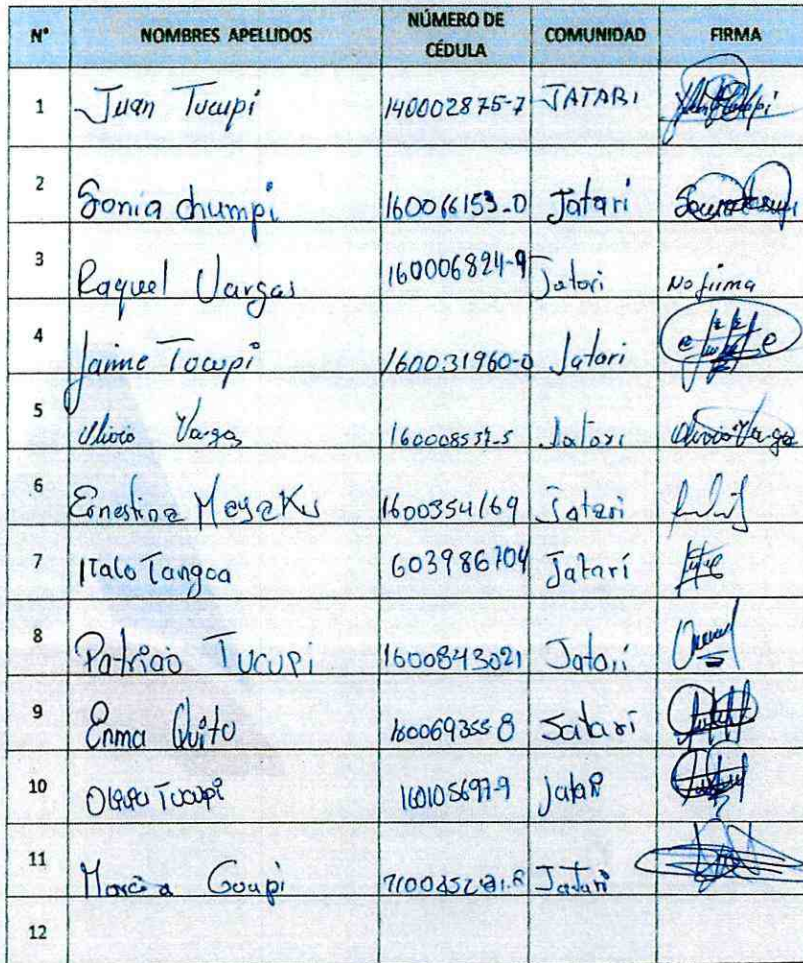 N° NOMBRES APELLIDOS NÚMERO DE CÉDULA COMUNIDAD FIRMA
1 Juan Tucupi 140002875-7 JATARI
2 Sonia chumpi 160066153-0 Jatari
3 Raquel Vargas 160006824-9 Jatari No firma
4 Jaime Tocupi 160031960-0 Jatari
5 Vargas 160008537-5 Jatari
6 Ernestina 1600354169 Jatari
7 Italo Tangoa 603986704 Jatarí
8 Patricio Tucupi 1600843021 Jatari
9 Enma Quito 160069355-8 Satari
10 Tucupi 160105697-9 Jatari
11 Jatari
12